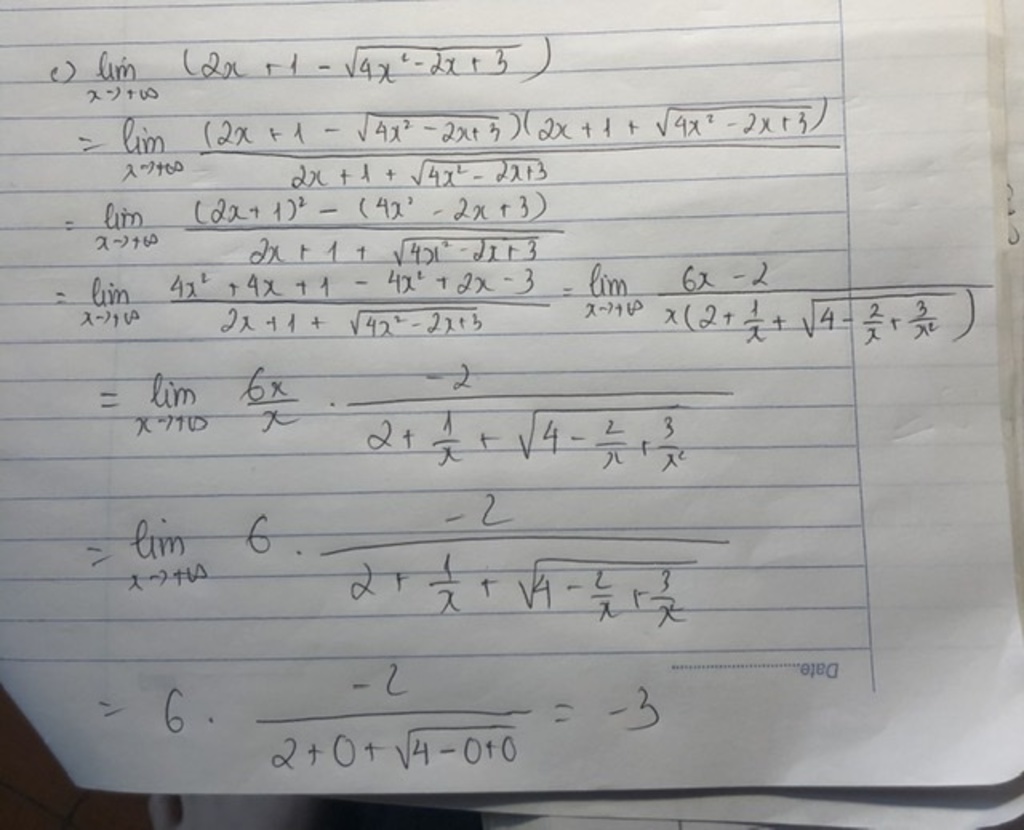 c) lim x→+∞ (2x + 1 - √(4x² - 2x + 3))
= lim x→+∞ (2x + 1 - √(4x² - 2x + 3))(2x + 1 + √(4x² - 2x + 3)) / (2x + 1 + √(4x² - 2x + 3))
= lim x→+∞ ((2x + 1)² - (4x² - 2x + 3)) / (2x + 1 + √(4x² - 2x + 3))
= lim x→+∞ (4x² + 4x + 1 - 4x² + 2x - 3) / (2x + 1 + √(4x² - 2x + 3)) = lim x→+∞ (6x - 2) / (x(2 + 1/x + √(4 - 2/x + 3/x²)))
= lim x→+∞ 6x/x . -2 / (2 + 1/x + √(4 - 2/x + 3/x²))
= lim x→+∞ 6 . -2 / (2 + 1/x + √(4 - 2/x + 3/x²))
Date
= 6 . -2 / (2 + 0 + √(4 - 0 + 0)) = -3